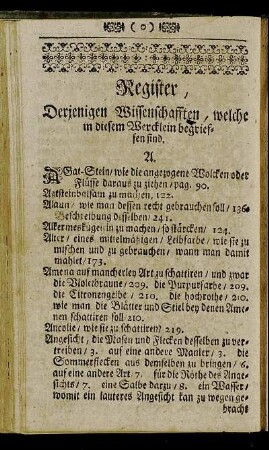 ( o )
Register,
Derjenigen Wissenschafften, welche
in diesem Wercklein begrief-
fen sind.
A.
AGat-Stein/ wie die angezogene Wolcken oder
Flüsse daraus zu ziehen/ pag. 90.
Agtsteinbalsam zu machen, 122.
Alaun/ wie man dessen recht gebrauchen soll/ 136
Beschreibung desselben/ 241.
Alkermeskügelein zu machen/ so stärcken/ 124.
Alter/ eines mittelmäßigen/ Leibfarbe/ wie sie zu
mischen und zu gebrauchen/ wann man damit
mahlet/ 173.
Amena auf mancherley Art zu schattiren/ und zwar
die Violetbraune/ 209. die Purpurfarbe/ 209.
die Citronengelbe/ 210. die hochrothe/ 210.
wie man die Blätter und Stiel bey denen Ame-
nen schattiren soll 210.
Ancolie/ wie sie zu schattiren/ 219.
Angesicht/ die Masen und Flecken desselben zu ver-
treiben/ 3. auf eine andere Manier/ 3. die
Sommerflecken aus demselben zu bringen/ 6.
auf eine andere Art/ 7. für die Röthe des Ange-
sichts/ 7. eine Salbe darzu/ 8. ein Wasser/
womit ein lauteres Angesicht kan zu wegen ge-
bracht